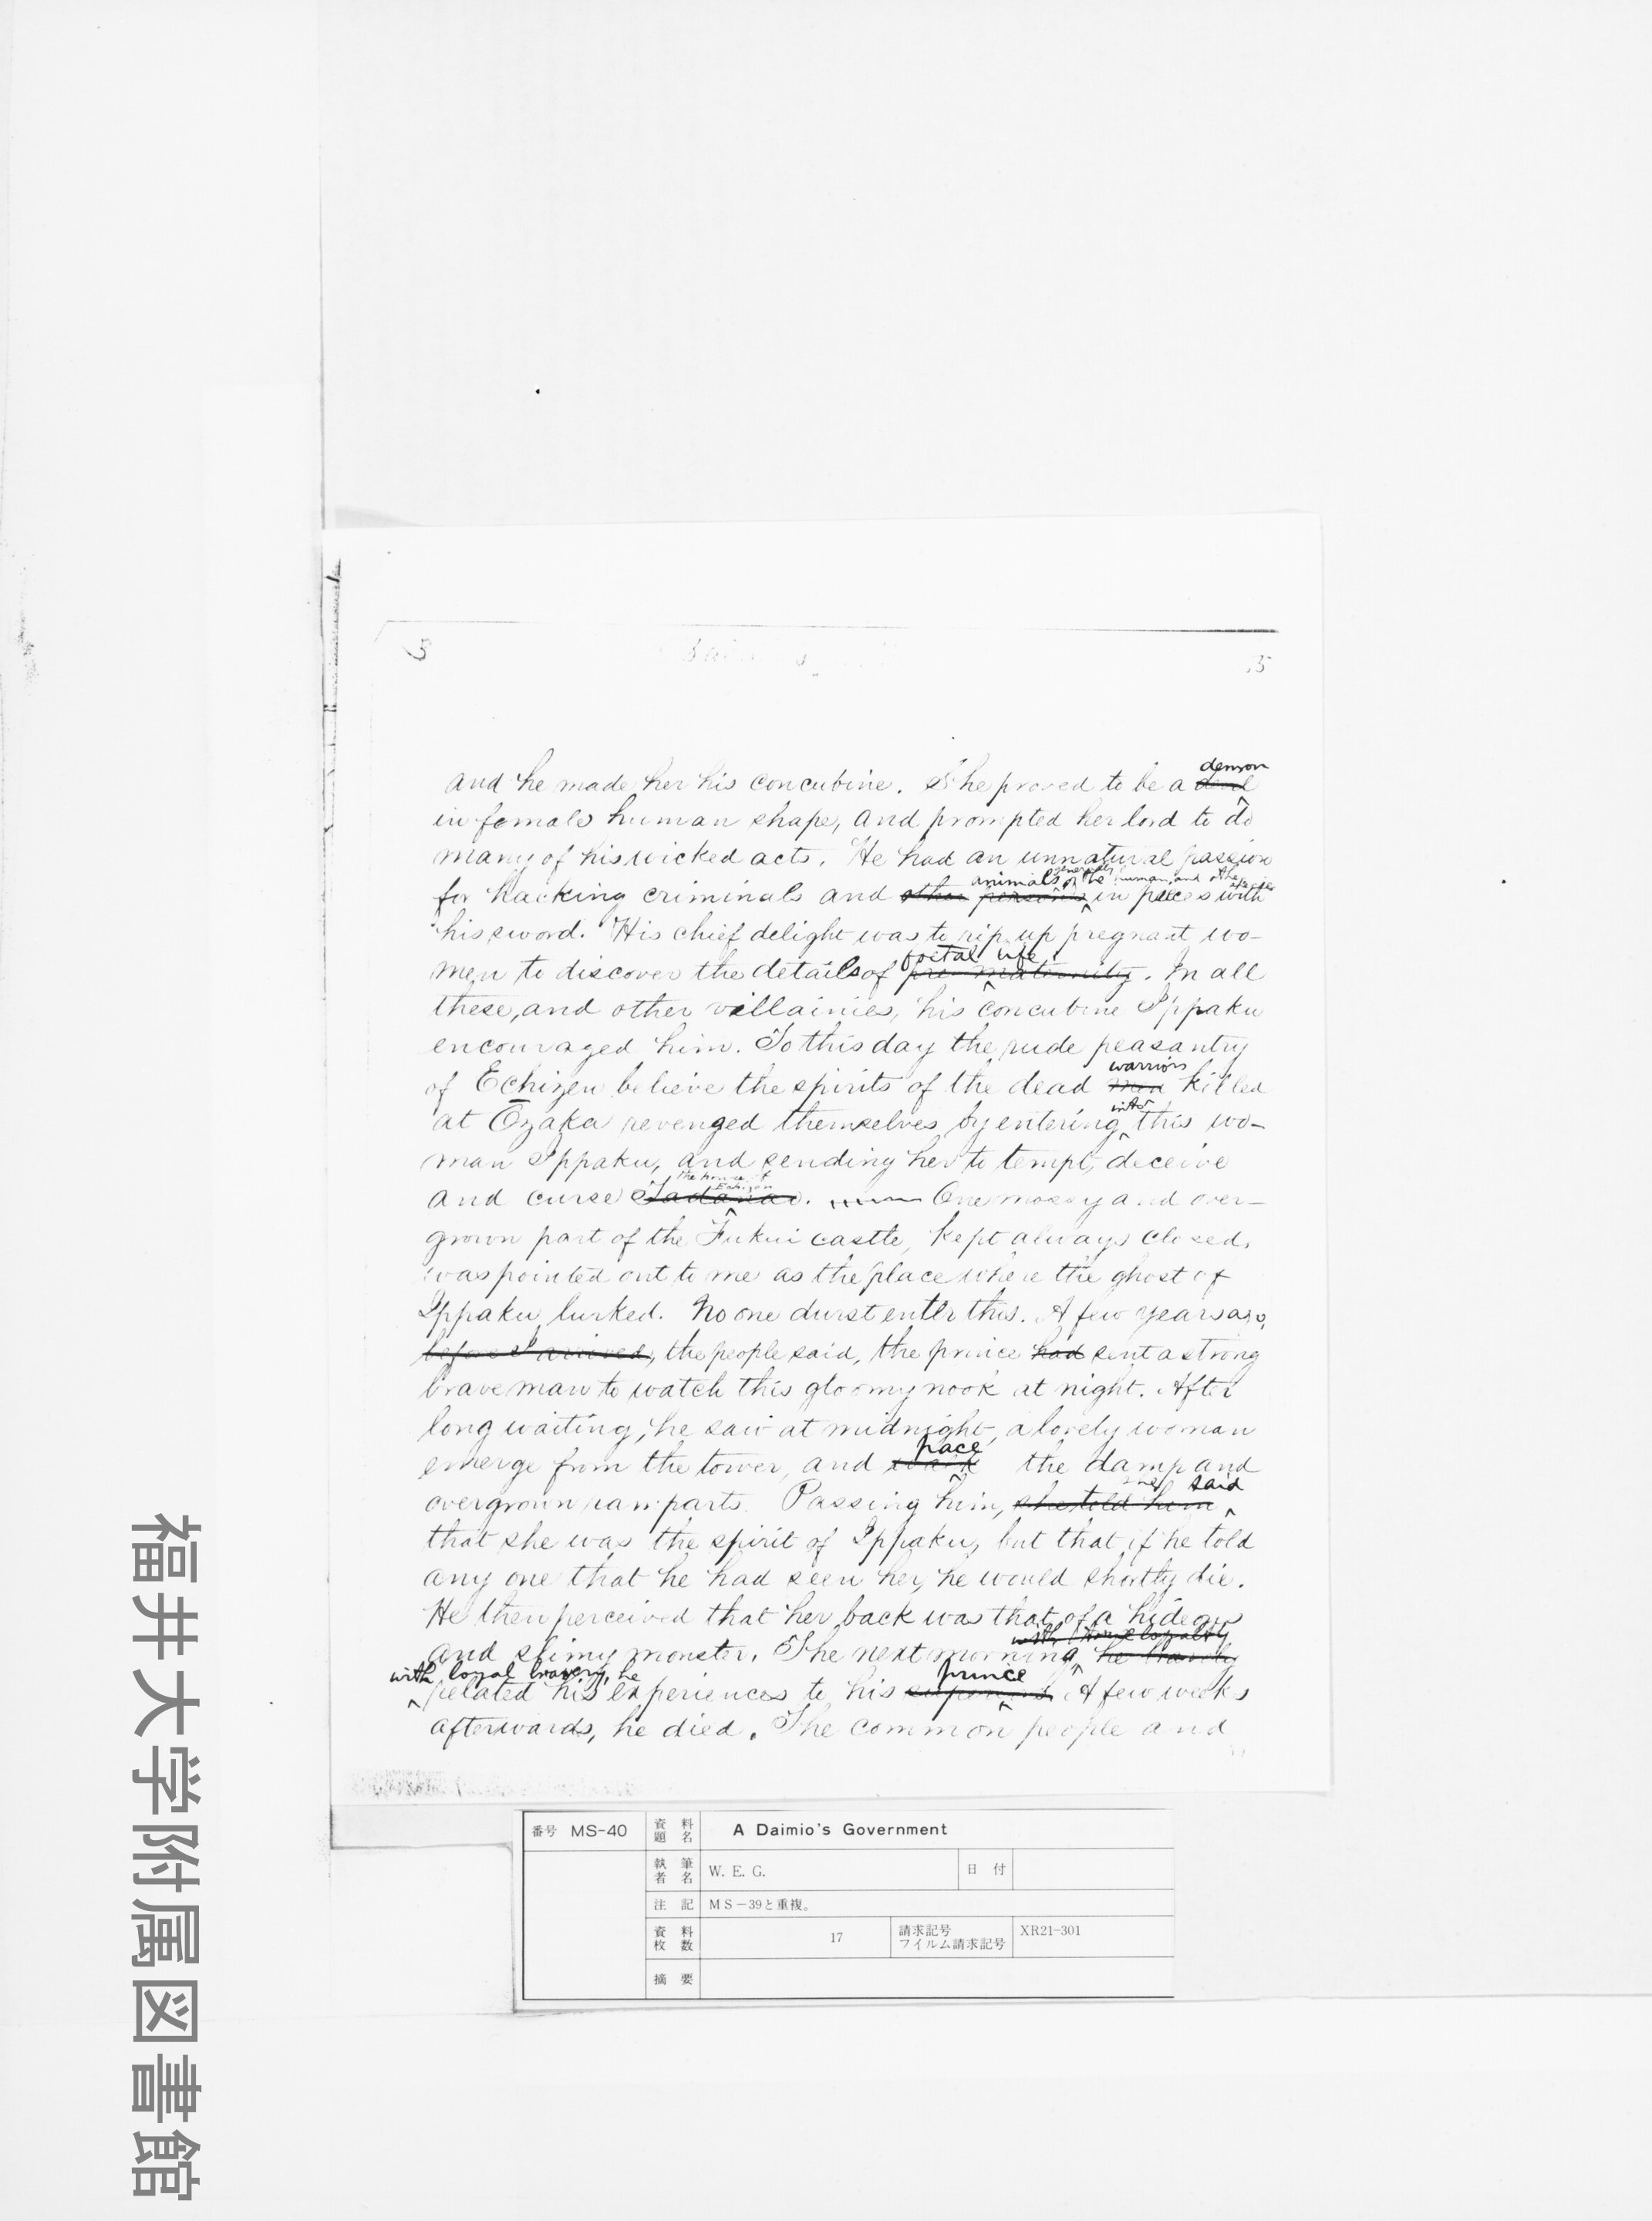 5
5
and he made her his concubine. She proved to be a devil demon
in female human shape, and prompted her lord to do
many of his wicked acts. He had an unnatural passion
for hacking criminals and other persons animals generally of the human, and other species in pieces with
his sword. His chief delight was to rip up pregnant wo-
men to discover the details of pre-maternity foetal life. In all
these, and other villainies, his concubine Ippaku
encouraged him. To this day the rude peasantry
of Echizen believe the spirits of the dead men warriors killed
at Ōzaka revenged themselves by entering into this wo-
man Ippaku, and sending her to tempt, deceive
and curse Tadanao the house of Echizen. One mossy and over-
grown part of the Fukui castle, kept always closed,
was pointed out to me as the place where the ghost of
Ippaku lurked. No one durst enter this. A few years ago,
before I arrived, the people said, the prince had sent a strong
brave man to watch this gloomy nook at night. After
long waiting, he saw at midnight, a lovely woman
emerge from the tower, and walk pace the damp and
overgrown ramparts. Passing him, she told him she said
that she was the spirit of Ippaku, but that if he told
any one that he had seen her, he would shortly die.
He then perceived that her back was that of a hideous
and slimy monster. The next morning, with loyalty he bravely
with loyal bravery, he related his experiences to his prince. A few weeks
afterwards, he died. The common people and
番号 MS-40 資料題名 A Daimio's Government
執筆者名 W. E. G. 日付
注記 MS-39と重複。
資料枚数 17 請求記号 フイルム請求記号 XR21-301
摘要
福井大学附属図書館